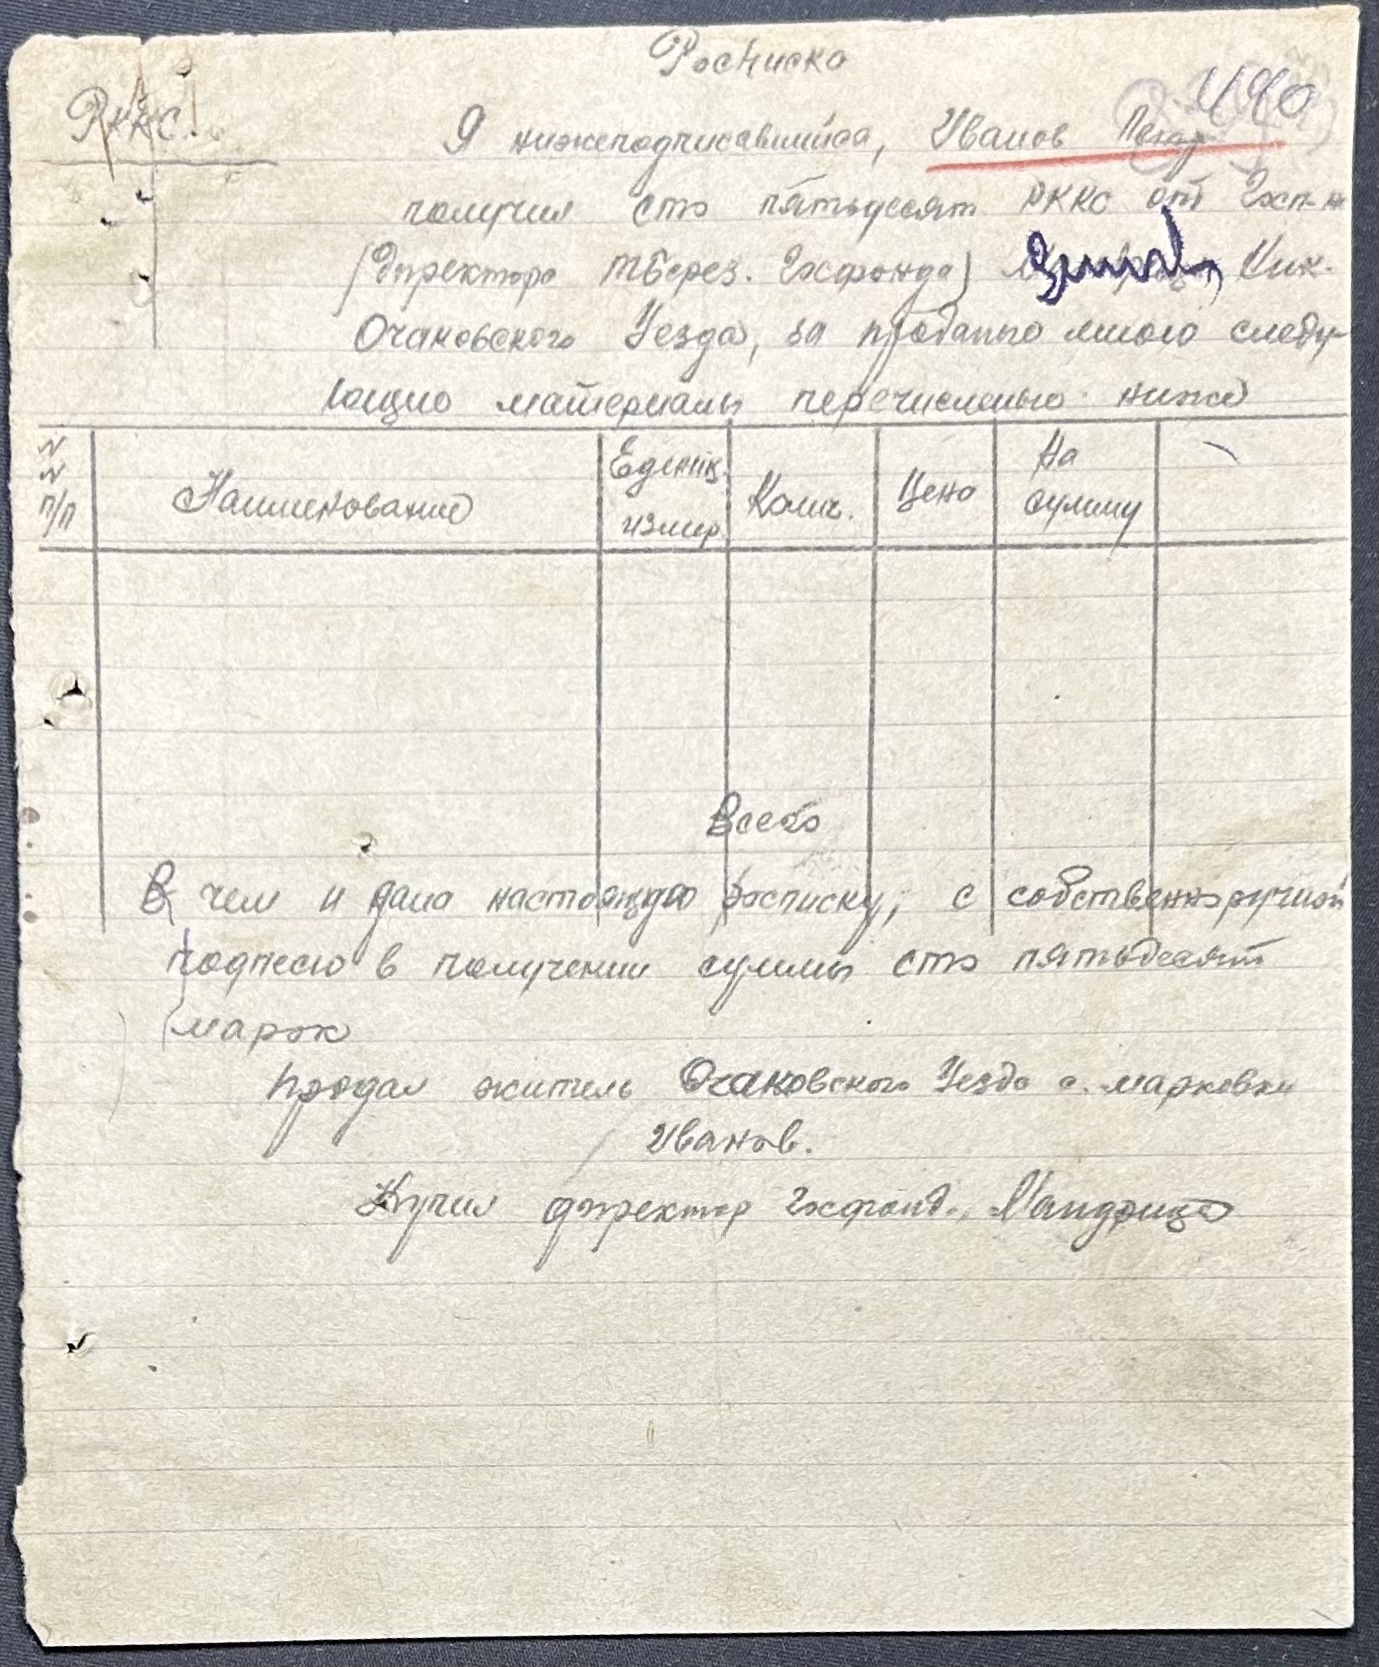 Росписка
490
РККС.
Я нижеподписавшийся, Иванов Петр
получил сто пятьдесят РККС от Госп-н
(директора Тберез. Госфонда) Ник.
Очаковского Уезда, за продатые мною следу-
ющие материалы перечисленые ниже
N N п/п
Наименование
Еденик. измер.
Колич.
Цена
На сумму
Всего
В чем и даю настоящую росписку, с собственноручной
подписю в получении суммы сто пятьдесят
марок
Продал житель Очаковского Уезда с. Марковки
Иванов.
Купил директор Госфонд.. Мандрица